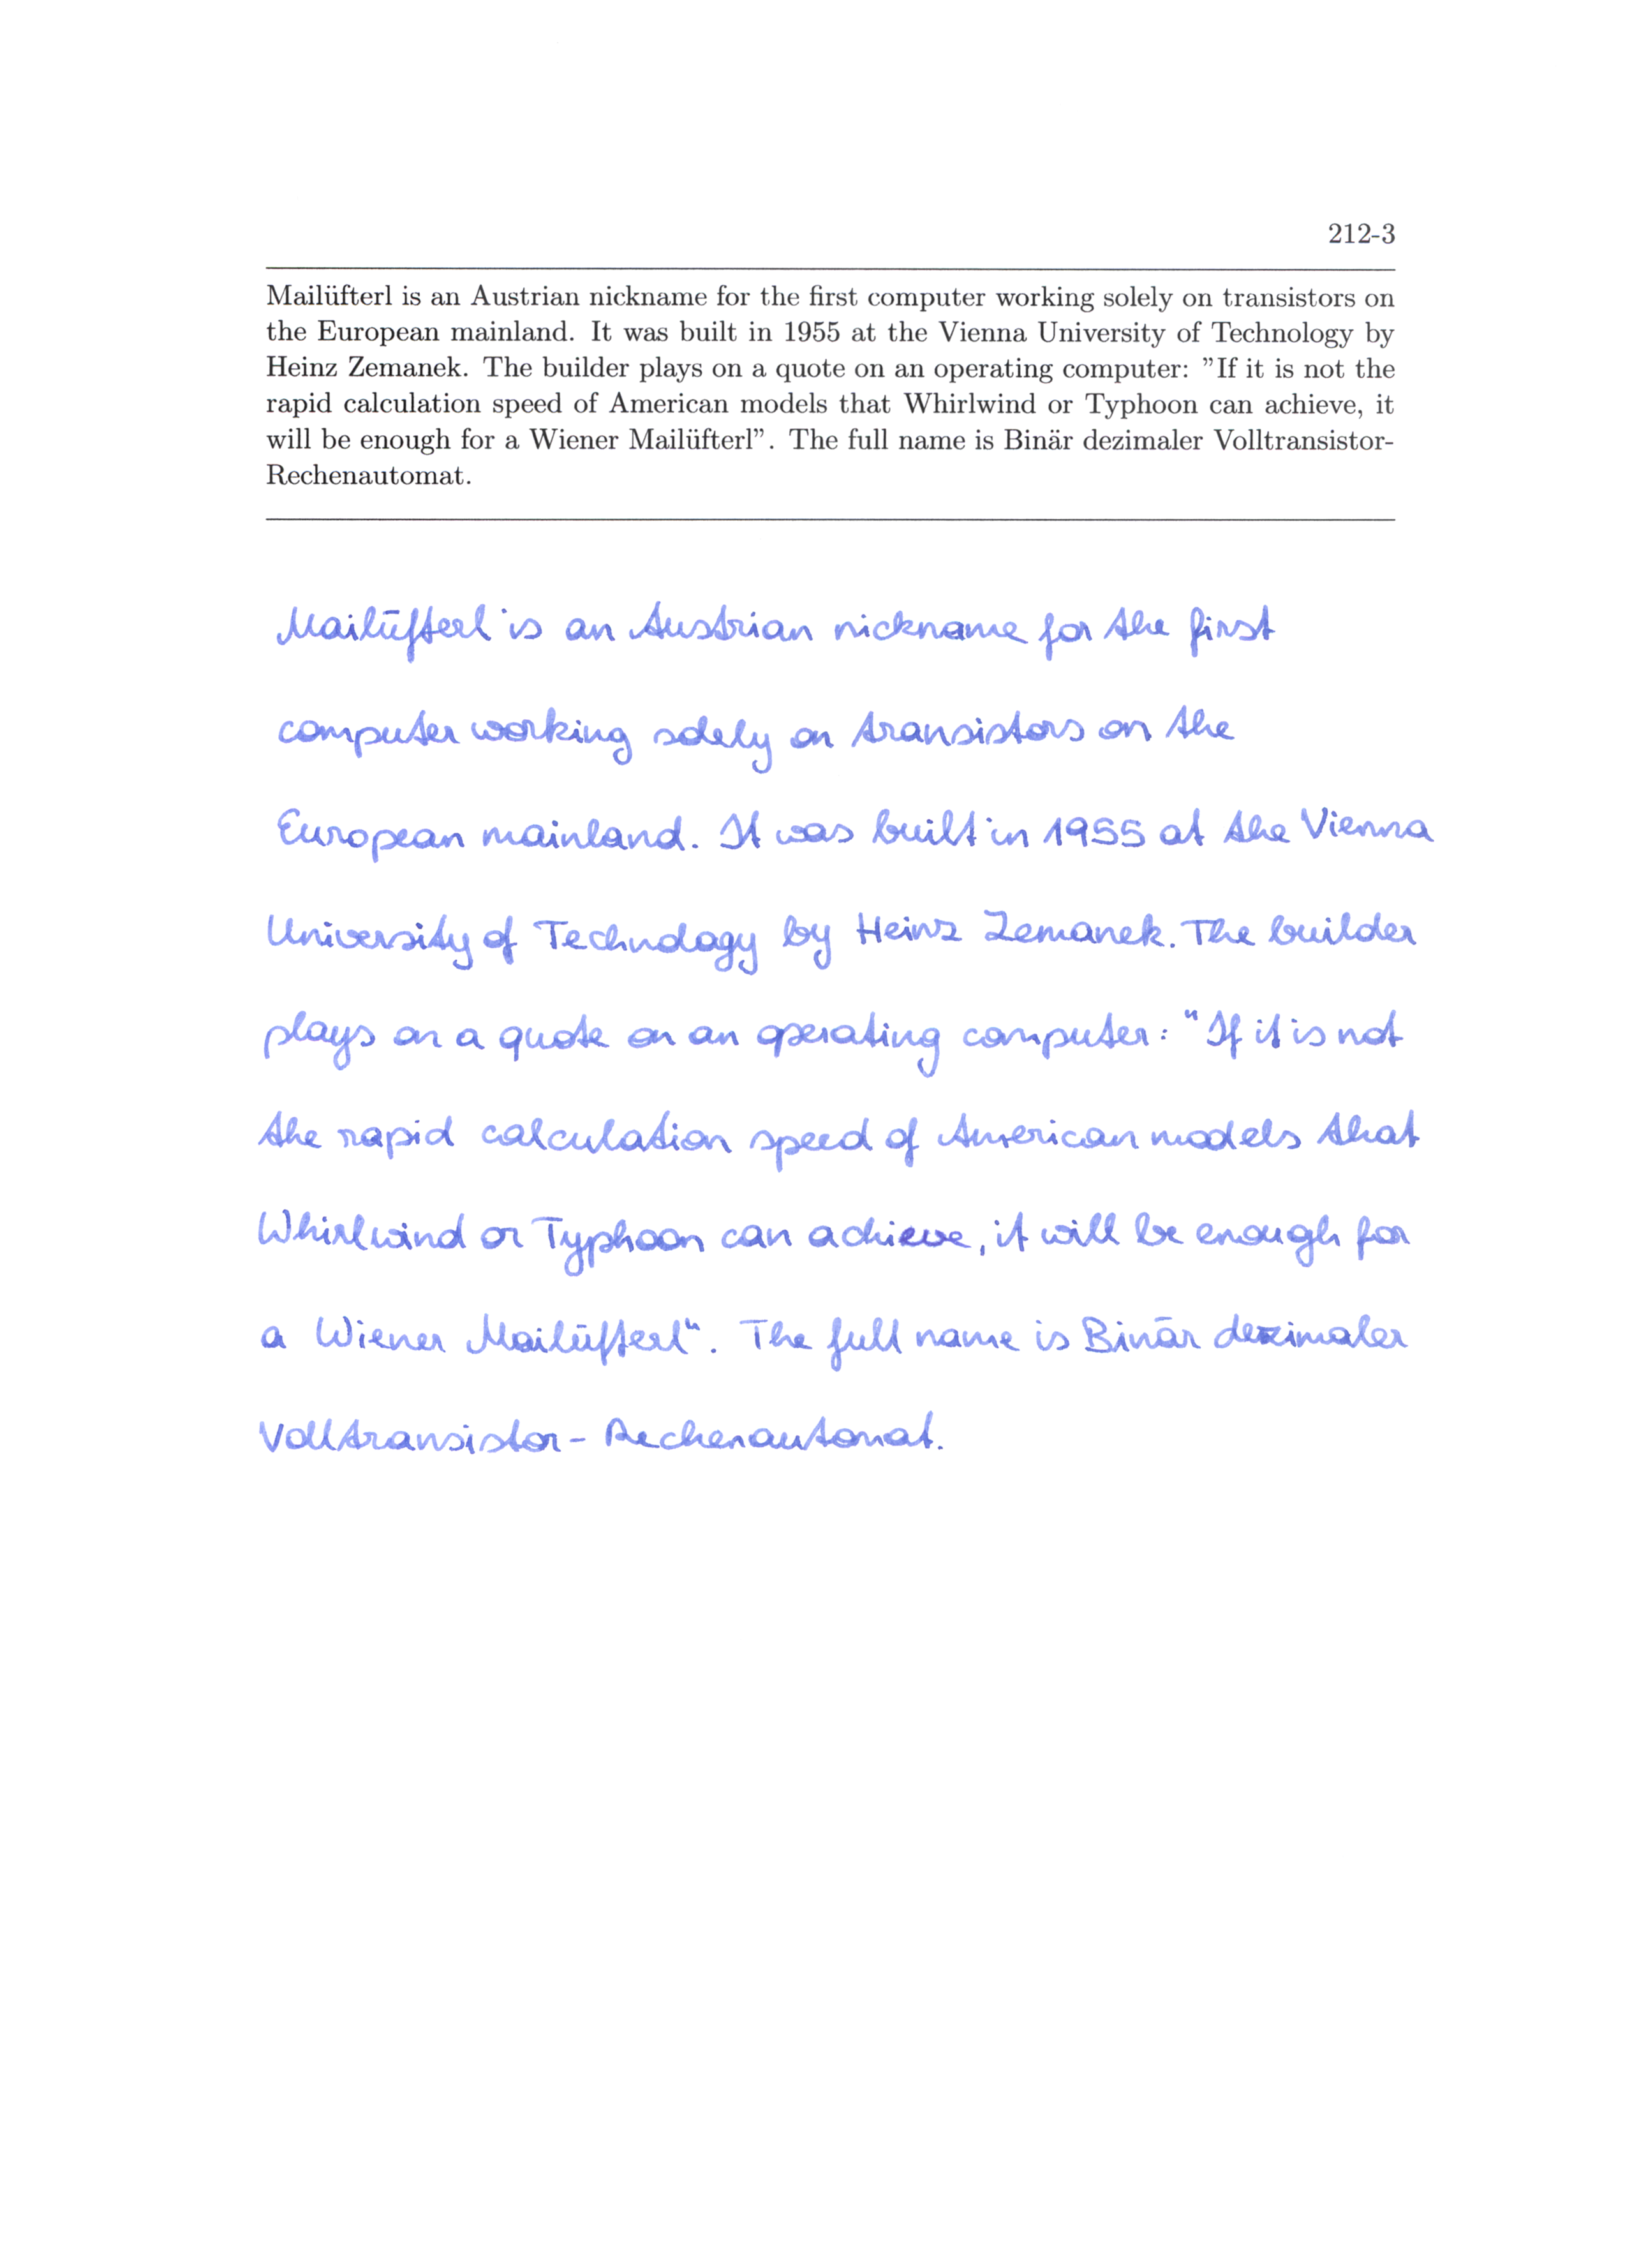 212-3
Mailüfterl is an Austrian nickname for the first computer working solely on transistors on
the European mainland. It was built in 1955 at the Vienna University of Technology by
Heinz Zemanek. The builder plays on a quote on an operating computer: ”If it is not the
rapid calculation speed of American models that Whirlwind or Typhoon can achieve, it
will be enough for a Wiener Mailüfterl”. The full name is Binär dezimaler Volltransistor-
Rechenautomat.
Mailüfterl is an Austrian nickname for the first
computer working solely on transistors on the
European mainland. It was built in 1955 at the Vienna
University of Technology by Heinz Zemanek. The builder
plays on a quote on an operating computer: "If it is not
the rapid calculation speed of American models that
Whirlwind or Typhoon can achieve, it will be enough for
a Wiener Mailüfterl". The full name is Binär dezimaler
Volltransistor-Rechenautomat.